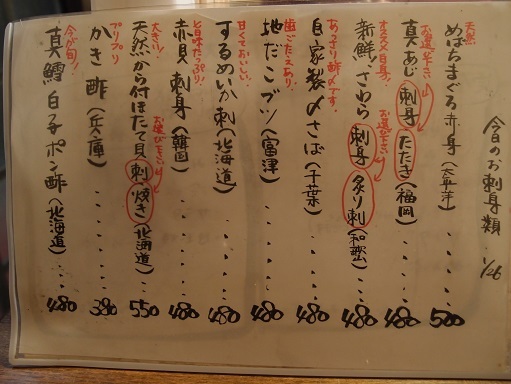 今日のお刺身類 1/26
天然
めばちまぐろ赤身(太平洋)・・・・500
お選び下さい
真あじ 刺身 たたき (福岡)・・・・480
オススメ白身!
お選び下さい
新鮮!さわら 刺身 炙り刺 (和歌山)・・・480
あっさり酢〆です。
自家製〆さば(千葉)・・・・480
歯ごたえあり
地だこブツ(富津)・・・・480
甘くておいしい
するめいか刺(北海道)・・・・480
旨味たっぷり!
赤貝刺身(韓国)・・・・480
大きい!
お選び下さい
天然から付ほたて貝 刺 焼き (北海道)・・・550
プリプリ
かき酢(兵庫)・・・・380
今が旬!
真鱈白子ポン酢(北海道)・・・480